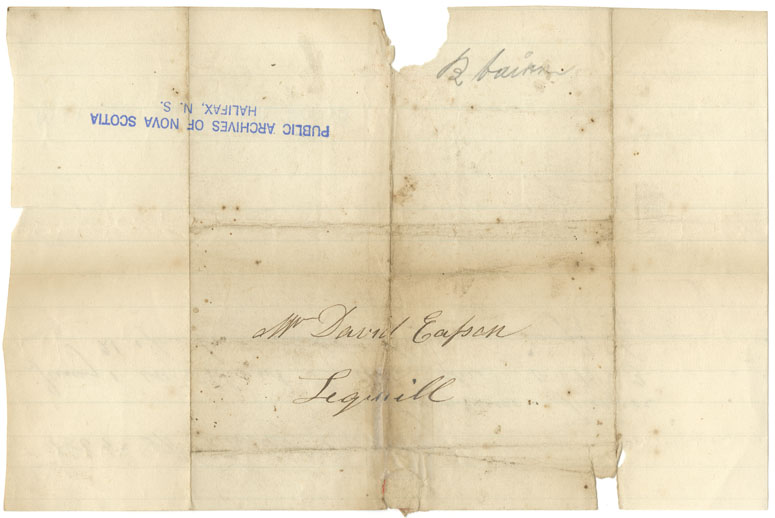 PUBLIC ARCHIVES OF NOVA SCOTIA
HALIFAX, N. S.
Mr David Eaſson
Lequille